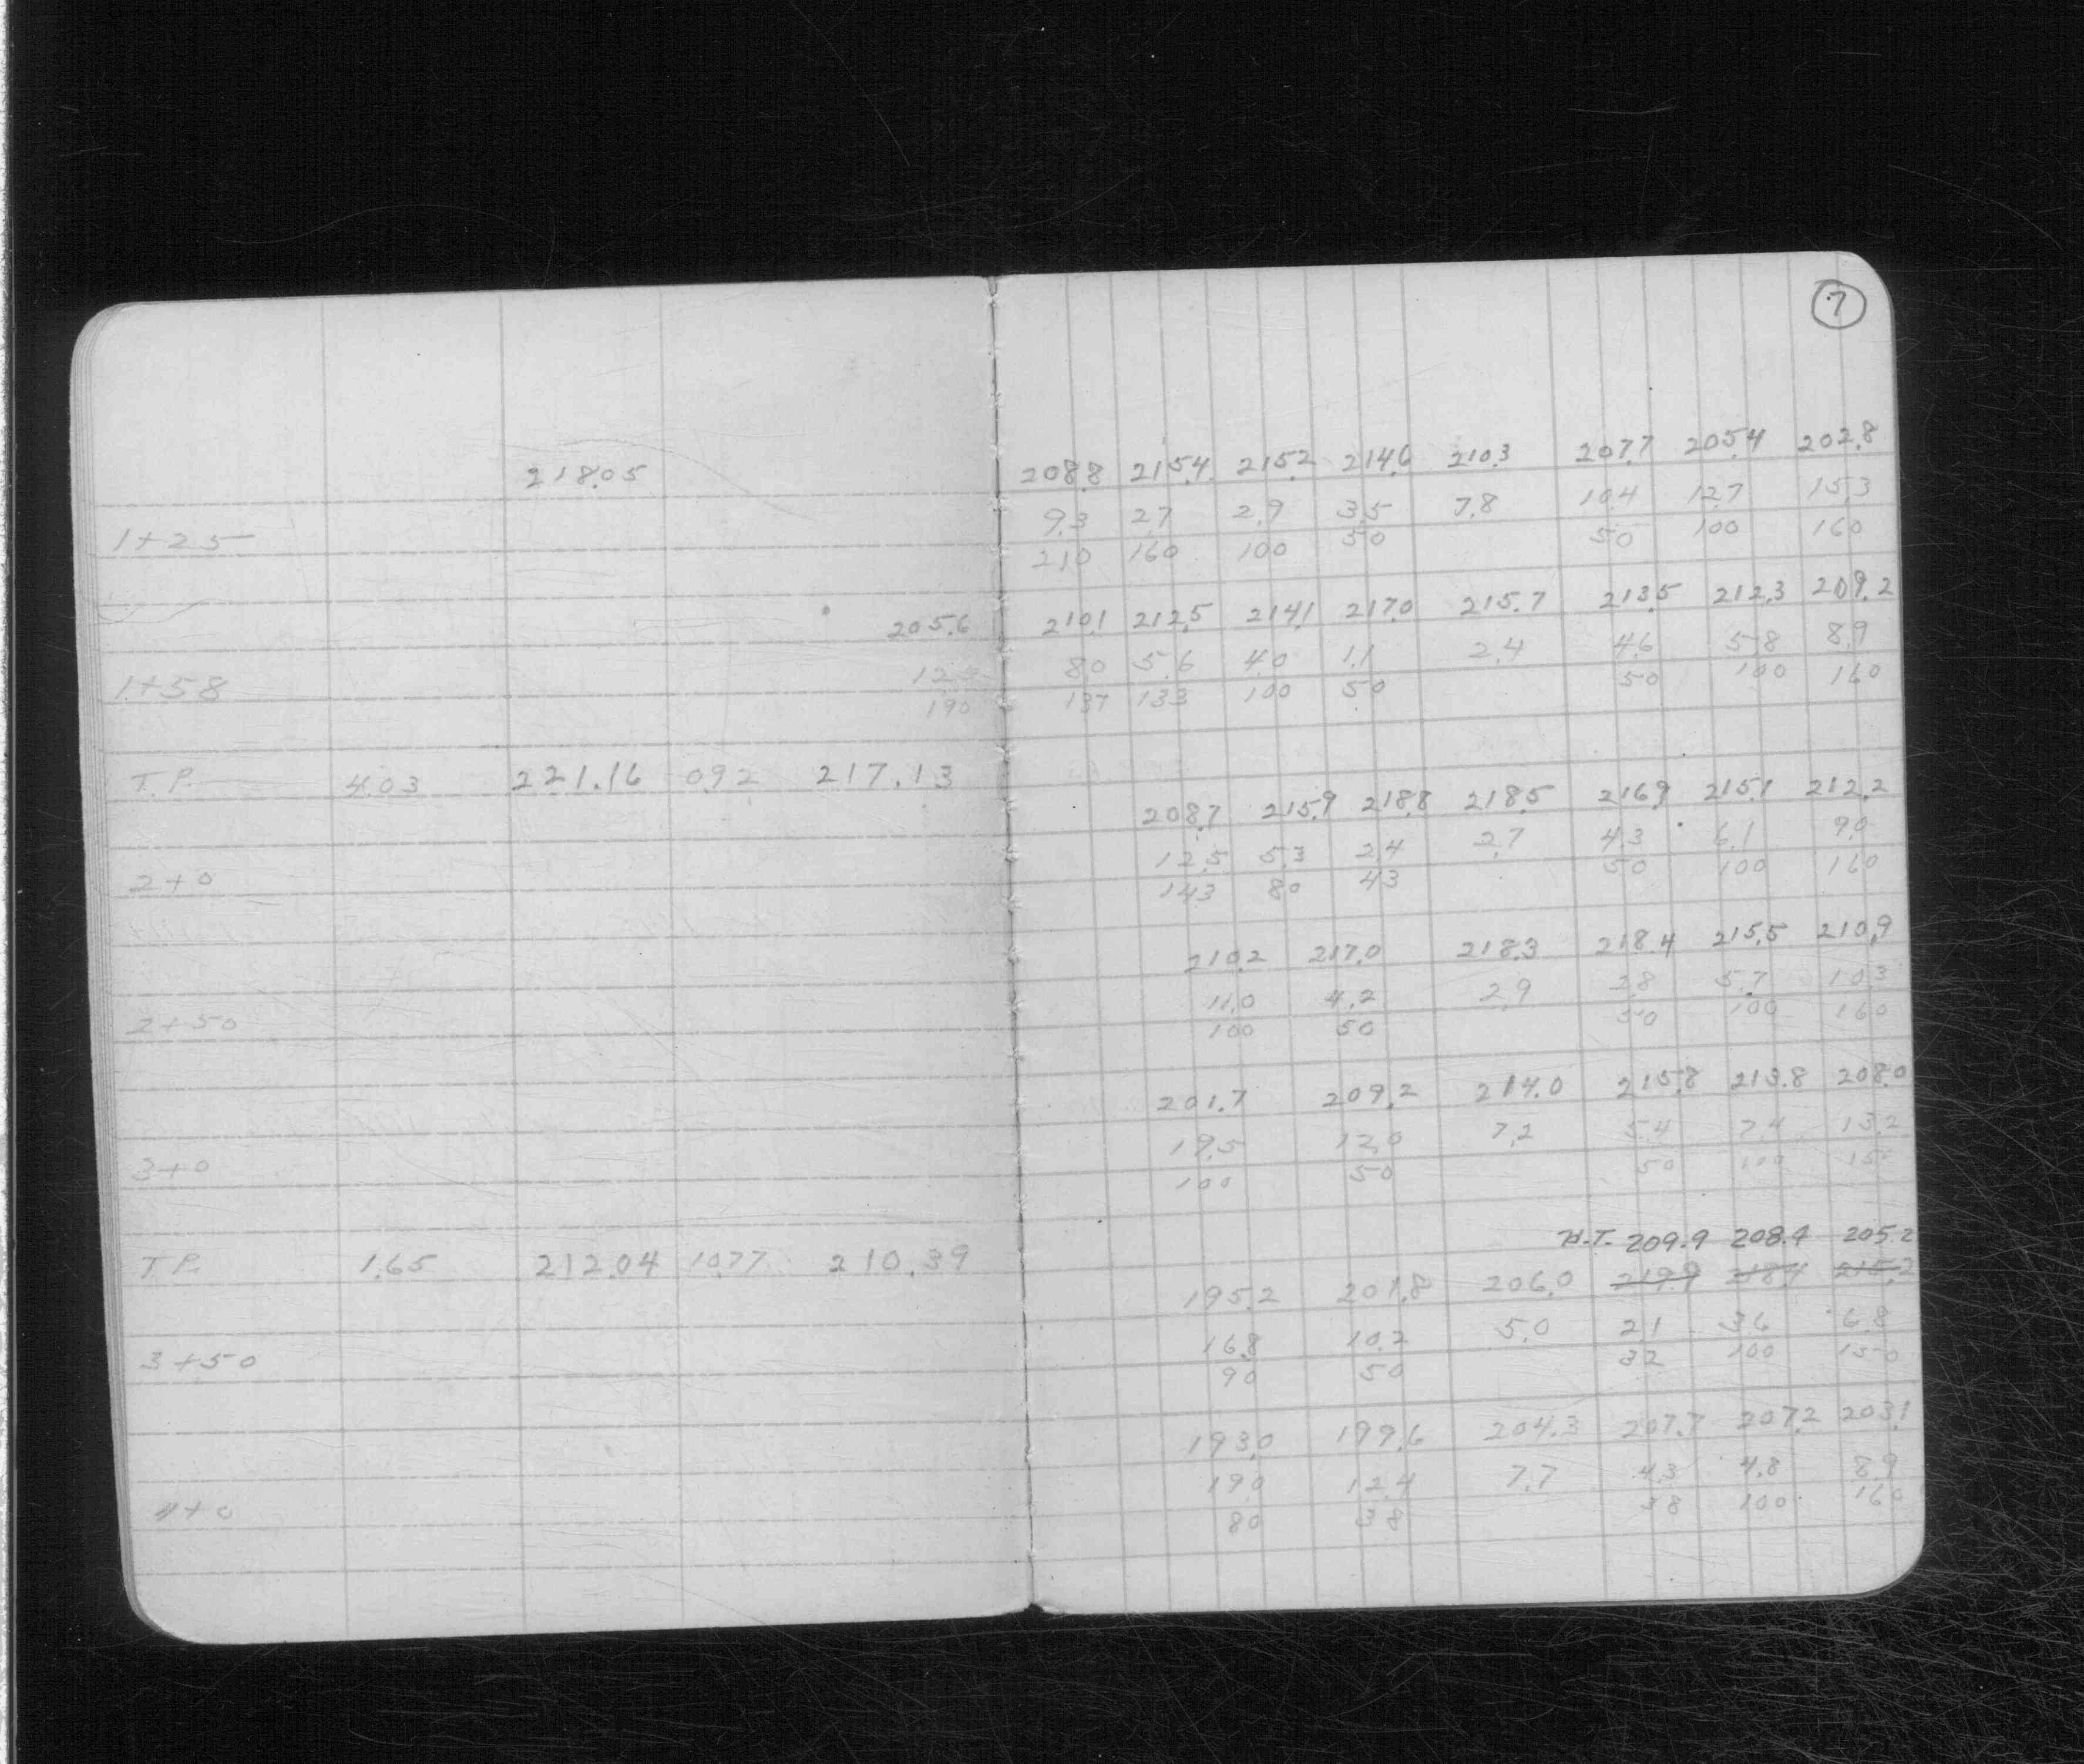 7
218.05 208.8 215.4 215.2 214.6 210.3 207.7 205.4 202.8
9.3 2.7 2.9 3.5 7.8 10.4 12.7 15.3
1+25 210 160 100 50 50 100 160
205.6 210.1 212.5 214.1 217.0 215.7 213.5 212.3 209.2
8.0 5.6 4.0 1.1 2.4 4.6 5.8 8.9
1+58 190 137 133 100 50 50 100 160
T.P. 4.03 221.16 0.92 217.13
208.7 215.9 218.8 218.5 216.9 215.1 212.2
12.5 5.3 2.4 2.7 4.3 6.1 9.0
2+0 143 80 43 50 100 160
210.2 217.0 218.3 218.4 215.5 210.9
11.0 4.2 2.9 2.8 5.7 10.3
2+50 100 50 50 100 160
201.7 209.2 214.0 215.8 213.8 208.0
19.5 12.0 7.2 5.4 7.4 13.2
3+0 100 50 50 100
H.I. 209.9 208.4 205.2
T.P. 1.65 212.04 10.77 210.39
195.2 201.8 206.0 219.9 218.4 215.2
16.8 10.2 5.0 2.1 3.6 6.8
3+50 90 50 32 100 150
193.0 199.6 204.3 207.7 207.2 203.1
19.0 12.4 7.7 4.3 4.8 8.9
4+0 80 38 38 100 160